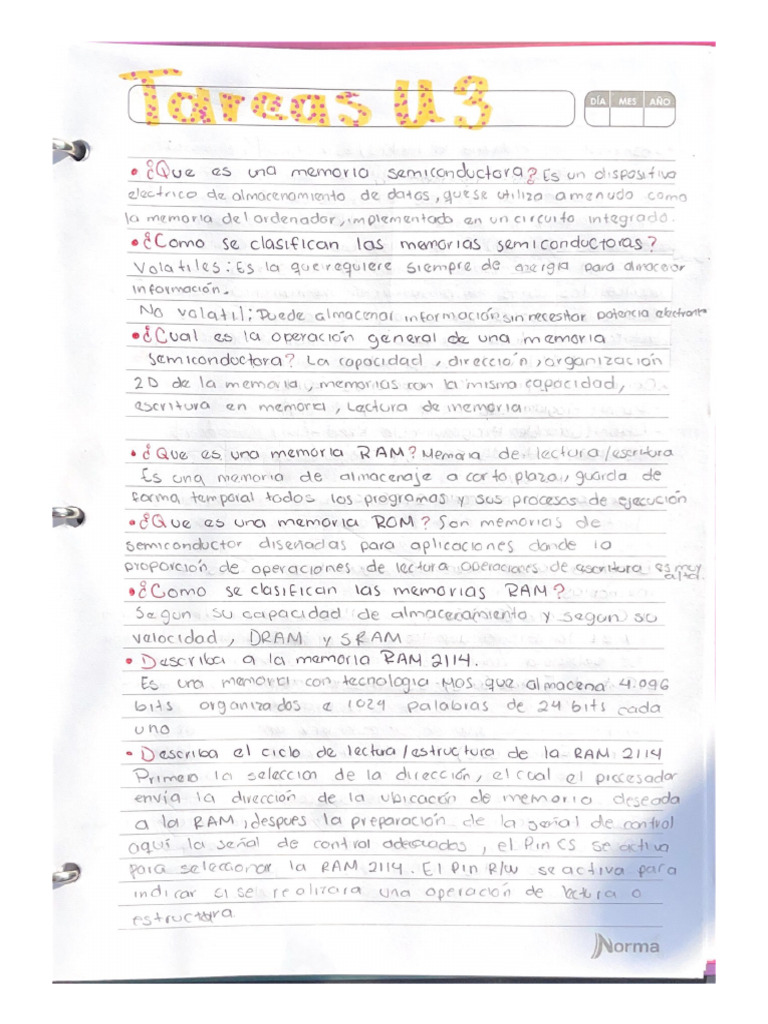 Tareas U3
DÍA MES AÑO
• ¿Que es una memoria semiconductora? Es un dispositivo
electrico de almacenamiento de datos, que se utiliza a menudo como
la memoria del ordenador, implementado en un circuito integrado.
• ¿Como se clasifican las memorias semiconductoras?
Volatiles: Es la que requiere siempre de energia para almacenar
información.
No volatil; Puede almacenar información sin necesitar potencia electrone
• ¿Cual es la operación general de una memoria
semiconductora? La capacidad, dirección, organización
2D de la memoria, memorias con la misma capacidad,
escritura en memoria, Lectura de memoria
• ¿Que es una memoria RAM? Memoria de lectura/escritura
Es una memoria de almacenaje a corto plazo, guarda de
forma temporal todos los programas y sus procesos de ejecución
• ¿Que es una memoria ROM? Son memorias de
semiconductor diseñadas para aplicaciones donde la
proporción de operaciones de lectura operaciones de escritura es muy
alta.
• ¿Como se clasifican las memorias RAM?
Segun su capacidad de almacenamiento y segun su
velocidad, DRAM y SRAM
• Describa a la memoria RAM 2114.
Es una memoria con tecnologia MOS que almacena 4.096
bits organizados e 1024 palabras de 24 bits cada
uno
• Describa el ciclo de lectura/estructura de la RAM 2114
Primero la seleccion de la dirección, el cual el procesador
envía la dirección de la ubicación de memoria deseada
a la RAM, despues la preparación de la señal de control
aquí la señal de control adecuados, el Pin CS se activa
para seleccionar la RAM 2114. El Pin R/W se activa para
indicar si se realizara una operación de lectura o
estructura
Norma